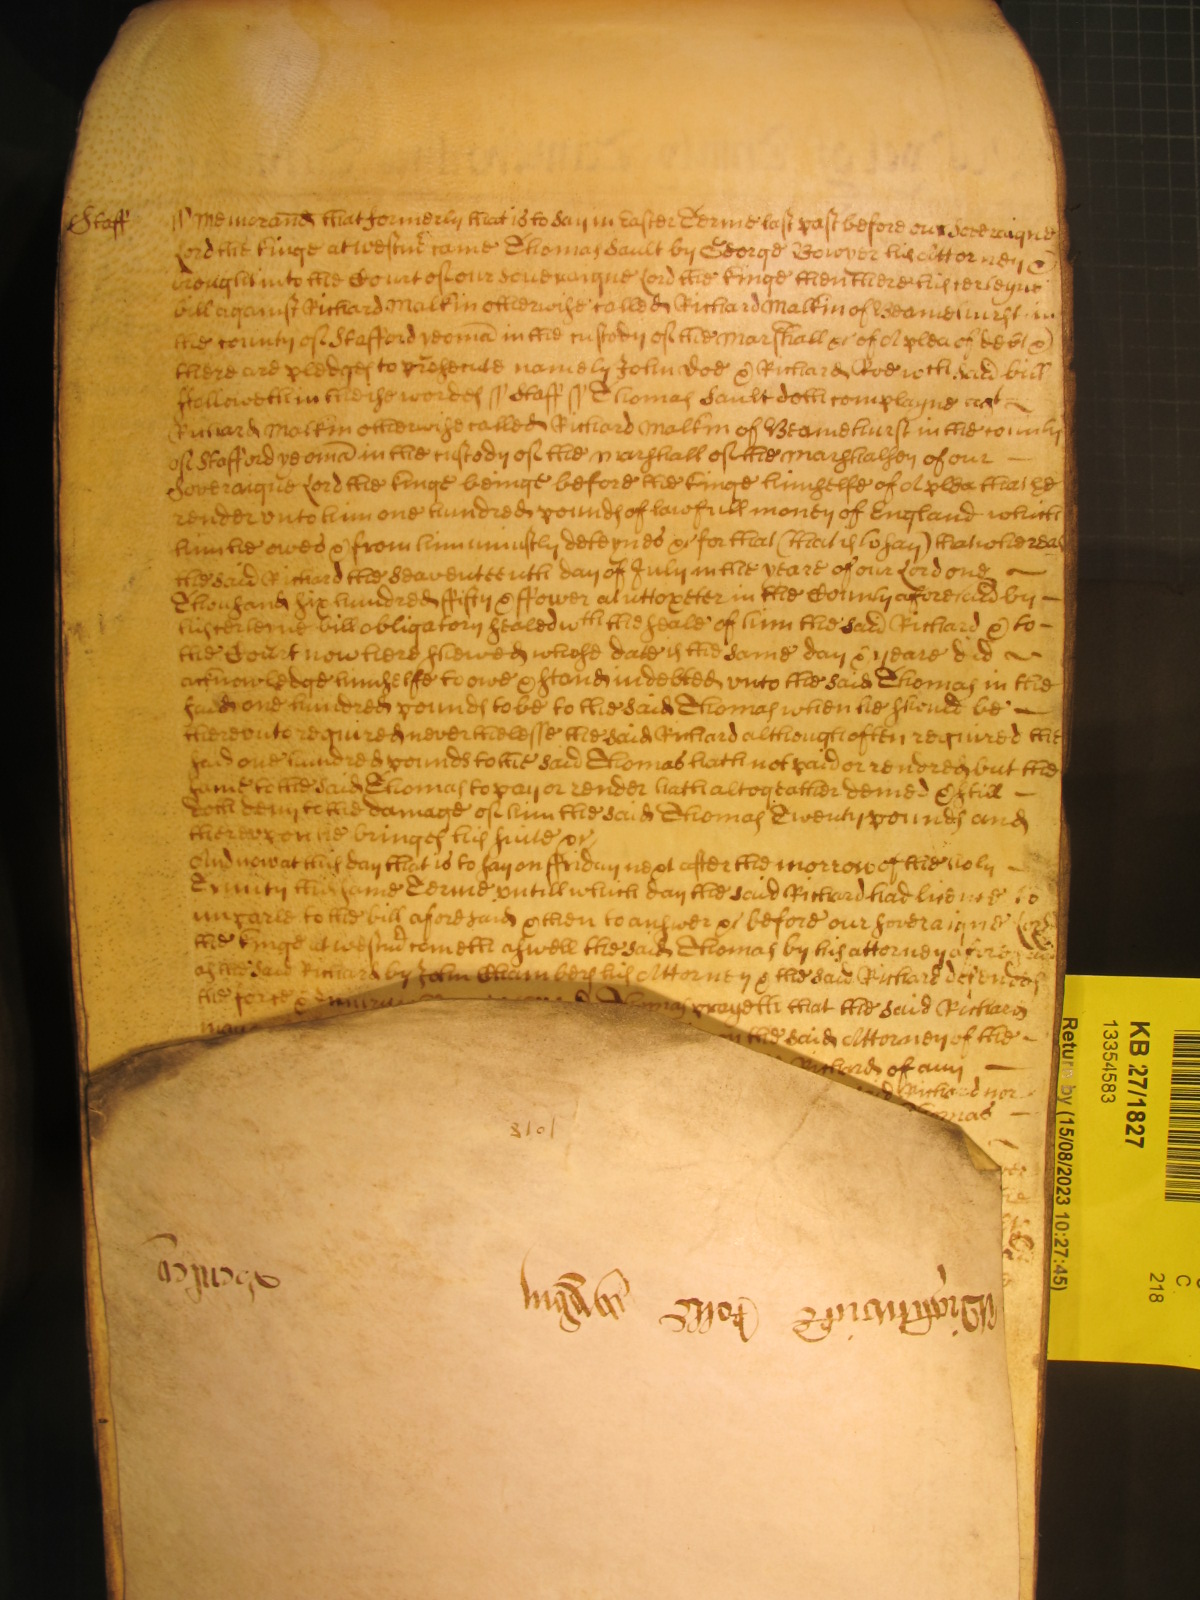 Staff
Memorand that formerly that is to say in Easter Terme last past before our Sovereigne
Lord the Kinge at Westmr came Thomas Sault by George Bower his Attorney &
brought into the Court of our Soveraigne Lord the Kinge then there his certeyne
bill against Richard Malkin otherwise called Richard Malkin of Beamehurst in
the county of Stafford yeoman in the custody of the Marshall &c of a plea of debt &
there are pledges to prosecute namely John Doe & Richard Roe wch said bill
followeth in these wordes ss Staff ss Thomas Sault doth complayne agt
Richard Malkin otherwise called Richard Malkin of Beamehurst in the county
of Stafford yeoman in the custody of the Marshall of the Marshalsey of our
Soveraigne Lord the Kinge beinge before the Kinge himselfe of a plea that he
render unto him one hundred pounds of lawfull money of England which
him he owes & from him uniustly deteynes &c for that (that is to say) that whereas
the said Richard the seaventeenth day of July in the yeare of our Lord one
Thousand six hundred fifty & ffower at Uttoxeter in the County aforesaid by
his certeine bill obligatory sealed wth the seale of him the said Richard & to
the Court now here shewed whose date is the same day & yeare did
acknowledge himselfe to owe & stand indebted unto the said Thomas in the
said one hundred pounds to be to the said Thomas when he should be
thereunto required neverthelesse the said Richard although often required the
said one hundred pounds to the said Thomas hath not paid or rendred but the
same to the said Thomas to pay or render hath altogeather denied & still
doth deny to the damage of him the said Thomas Twenty pounds and
thereupon he bringes his suite &c
And now at this day that is to say on ffriday next after the morrow of the holy
Trinity this same Terme untill which day the said Richard had licence to
imparle to the bill aforesaid & then to answer &c before our soveraigne Lord
the Kinge at Westmr cometh aswell the said Thomas by his attorney aforesaid
as the said Richard by John Chambers his Attorney & the said Richard defendes
the force & Thomas prayeth that the said Richard
the said Attorney of the
Richard of any
said Richard nor
Thomas
1018
Wightwicke